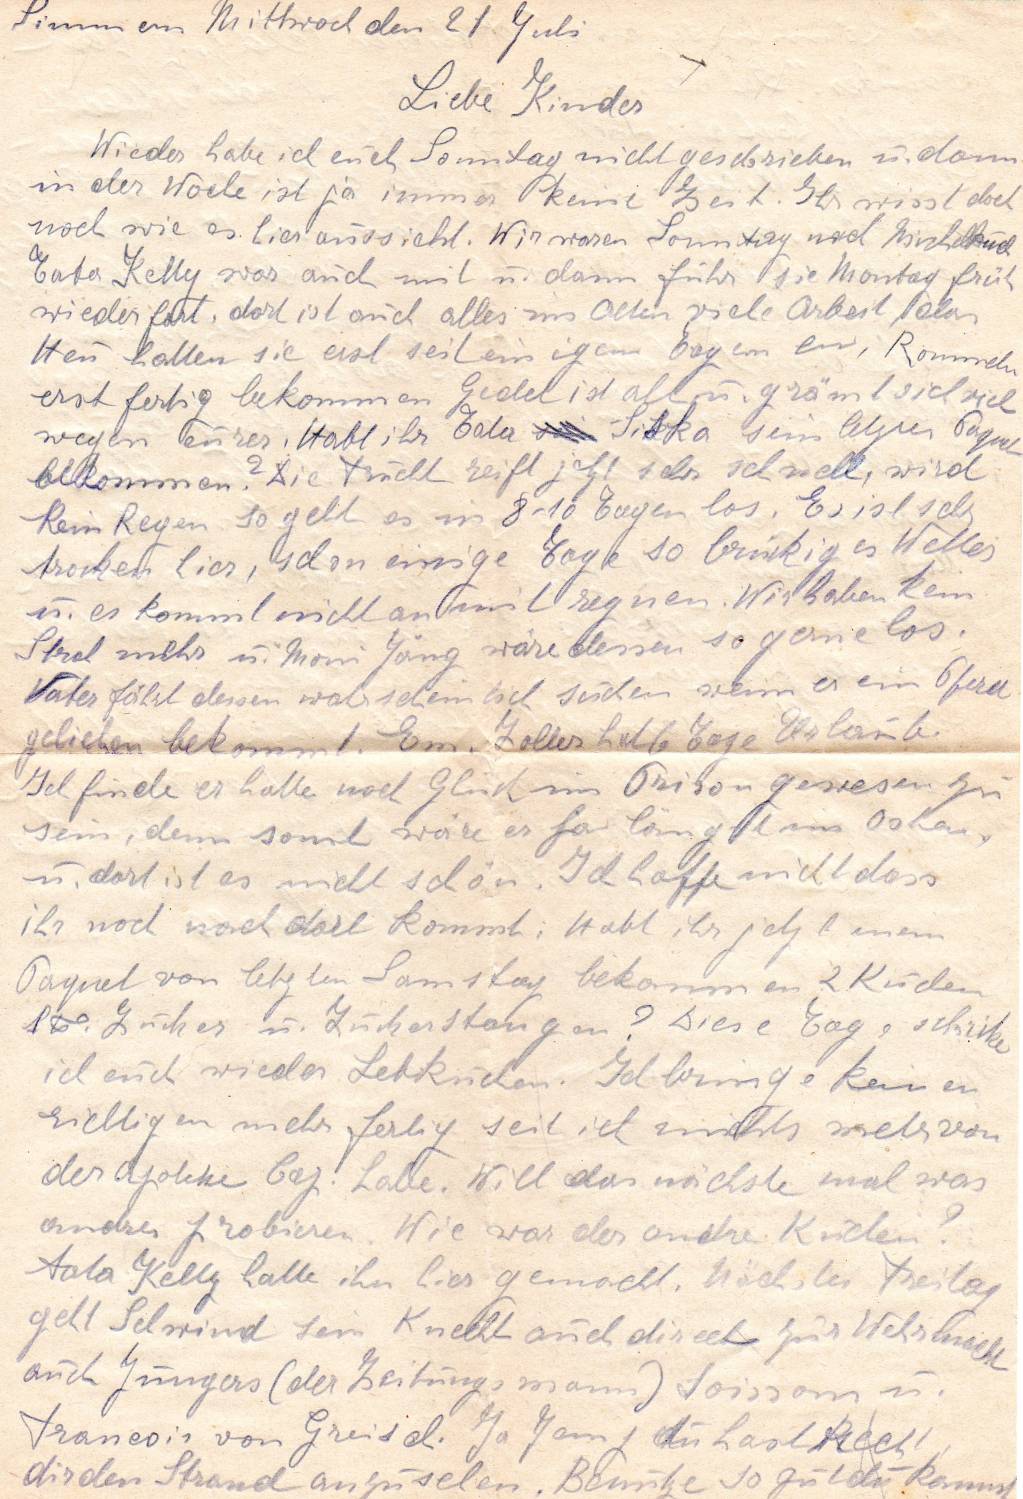 Simmern Mittwoch den 21 Juli
Liebe Kinder
Wieder habe ich euch Sonntag nicht geschrieben u. dann
in der Woche ist ja immer keine Zeit. Ihr wisst doch
noch wie es hier aussieht. Wir waren Sonntag nach
Tata Kelly war auch mit u. dann fuhr sie Montag früh
wieder fort, dort ist auch alles im Alten viele Arbeit
Heu hatten sie erst seit einigen Tagen en, Rommeln
erst fertig bekommen Gedel ist alt u. grämt sich viel
wegen eurer. Habt ihr Tata Siska sein letztes Paquet
bekommen? Die Frucht reift jetzt sehr schnell, wird
kein Regen so geht es in 8-10 Tagen los. Es ist sehr
trocken hier, schon einige Tage so Wetter
u. es kommt nicht an mit regnen. Wir haben kein
Streh mehr u. Moni Jäng wäre dessen so gerne los.
Vater fährt dessen wahrscheinlich suchen wenn er ein Pferd
geliehen bekommt. Em. Zoller hat 6 Tage Urlaub.
Ich finde er hatte noch Glück im Prison gewesen zu
sein, denn sonst wäre er ja längst im Osten,
u. dort ist es nicht schön. Ich hoffe nicht dass
ihr noch nach dort kommt. Habt ihr jetzt mein
Paquet von letzten Samstag bekommen 2 Kuchen
1 Zucker u. Zuckerstangen? Diese Tage schicke
ich euch wieder Lebkuchen. Ich bringe keinen
richtigen mehr fertig seit ich nichts mehr von
der habe. Will das nächste mal was
andres probieren. Wie war der andre Kuchen?
Tata Kelly hatte ihn hier gemacht. Nächsten Freitag
geht Schwind sein Knecht auch direct zur Wehrmacht
auch Jüngers (der Zeitungsmann) Soisson u.
Francois von Greisch. Ja Jemp du hast Recht
dir den Strand anzusehen. Benutze so gut du kannst